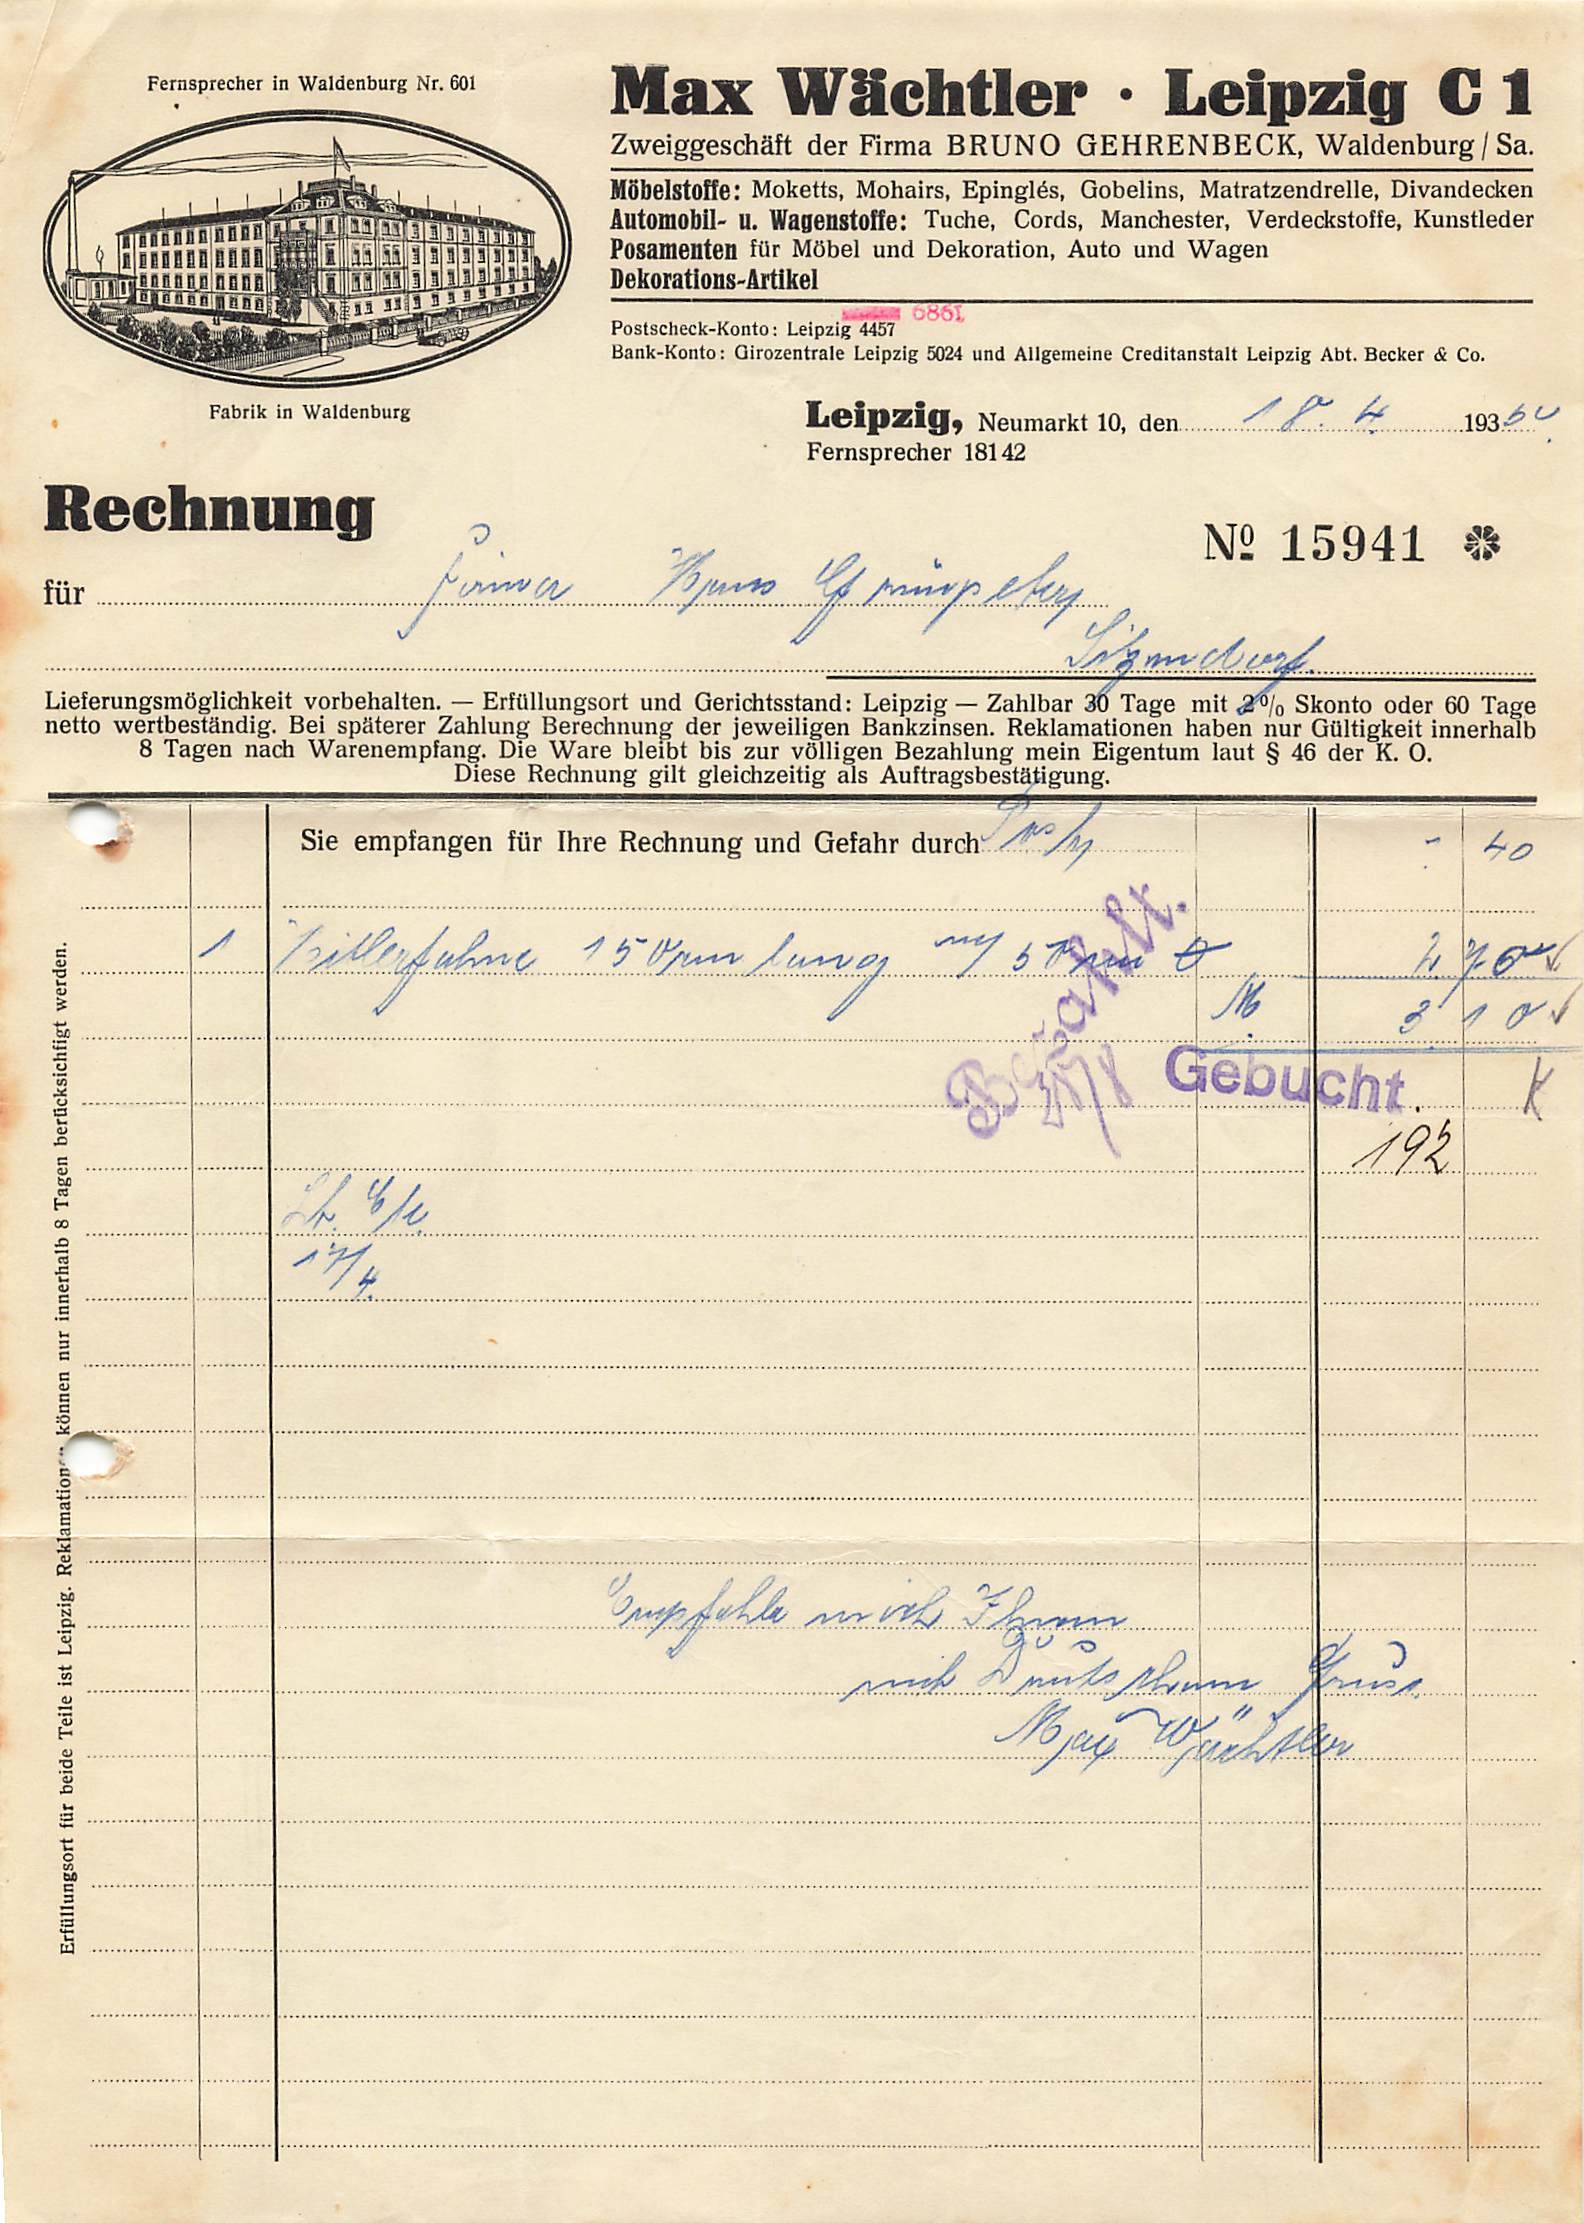 Fernsprecher in Waldenburg Nr. 601
Fabrik in Waldenburg
Max Wächtler · Leipzig C 1
Zweiggeschäft der Firma BRUNO GEHRENBECK, Waldenburg / Sa.
Möbelstoffe: Moketts, Mohairs, Epinglés, Gobelins, Matratzendrelle, Divandecken
Automobil- u. Wagenstoffe: Tuche, Cords, Manchester, Verdeckstoffe, Kunstleder
Posamenten für Möbel und Dekoration, Auto und Wagen
Dekorations-Artikel
6861
Postscheck-Konto: Leipzig 4457
Bank-Konto: Girozentrale Leipzig 5024 und Allgemeine Creditanstalt Leipzig Abt. Becker & Co.
Leipzig, Neumarkt 10, den 18. 4. 193
Fernsprecher 18142
Rechnung
№ 15941
für Firma Hans
Sitzendorf.
Lieferungsmöglichkeit vorbehalten. — Erfüllungsort und Gerichtsstand: Leipzig — Zahlbar 30 Tage mit 2% Skonto oder 60 Tage
netto wertbeständig. Bei späterer Zahlung Berechnung der jeweiligen Bankzinsen. Reklamationen haben nur Gültigkeit innerhalb
8 Tagen nach Warenempfang. Die Ware bleibt bis zur völligen Bezahlung mein Eigentum laut § 46 der K. O.
Diese Rechnung gilt gleichzeitig als Auftragsbestätigung.
Sie empfangen für Ihre Rechnung und Gefahr durch Post - 40
1 Hitlerfahne 150 cm lang 2 70
M. 3. 10
Bezahlt.
Gebucht.
192
17/4.
Empfehle mich Ihnen
mit Deutschem Gruss
Max Wächtler
Erfüllungsort für beide Teile ist Leipzig. Reklamationen können nur innerhalb 8 Tagen berücksichtigt werden.